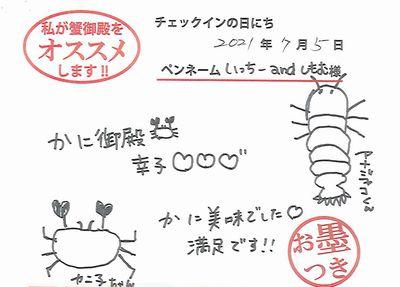 私が蟹御殿を
オススメ
します!!
チェックインの日にち
2021年7月5日
ペンネーム いっちーandしもむ様
かに御殿
幸子♡♡♡
アナジャコくん
かに美味でした♡
満足です!!
カニ子ちゃん
お墨
つき